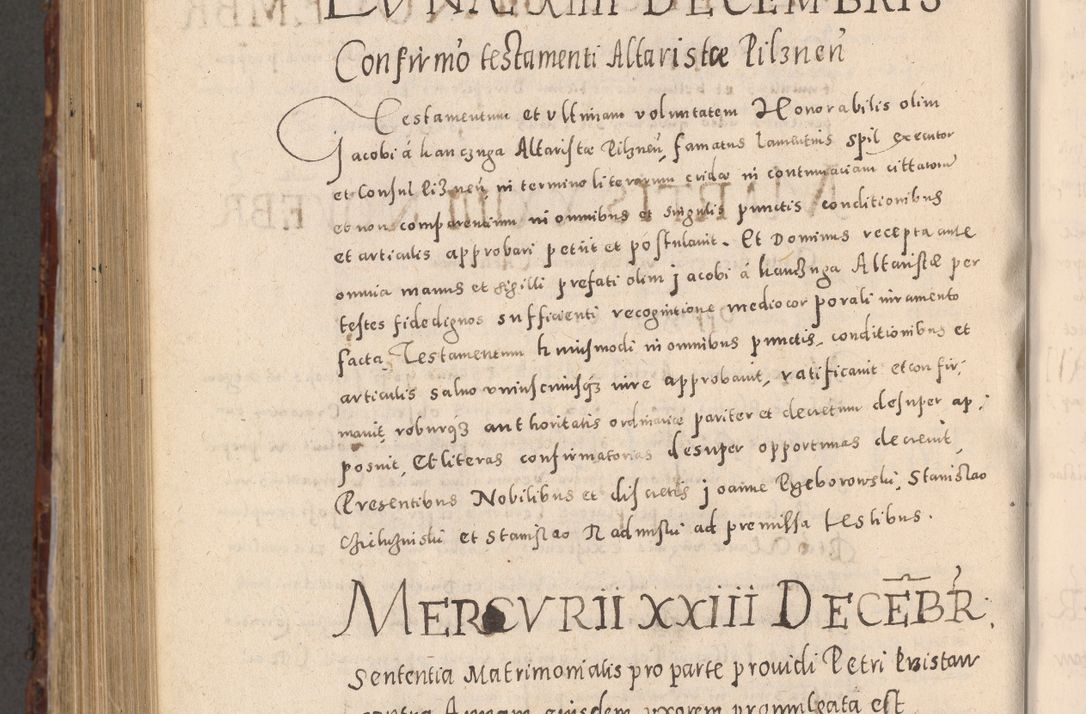 LVNAE XXIIII DECEMBRIS
Confirmo testamenti Altaristae Pilznen̄
Testamentum et ultimam voluntatem Honorabilis olim
Jacobi á Lanczuga Altaristae Pilznen̄, famatus Laurentius Spil executor
et Consul Pilznen̄, in termino literarum eidem in contumaciam cittatorum
et non comparentium in omnibus et singulis punctis conditionibus
et articulis approbari petiit et postulavit. Et Dominus recepta ante
omnia manus et sigilli prefati olim Jacobi á Lanczuga Altaristae per
testes fidedignos sufficienti recognitione medio corporali iuramento
facta, Testamentum huiusmodi in omnibus punctis, conditionibus et
articulis salvo uniuscuiusqȝ iure approbavit, ratificavit et confir,
mavit, roburqȝ authoritatis ordinariae pariter et decretum desuper ap,
posuit, Et literas confirmatorias desuper opportunas decrevit,
Presentibus Nobilibus et discretis Joanne Przeborowski, Stanislao
et Stanislao Radimski ad premissa testibus.
MERCVRII XXIII DECEBR:
Sententia Matrimonialis pro parte providi Petri Kristan
contra Annam eiusdem uxorem promulgata est